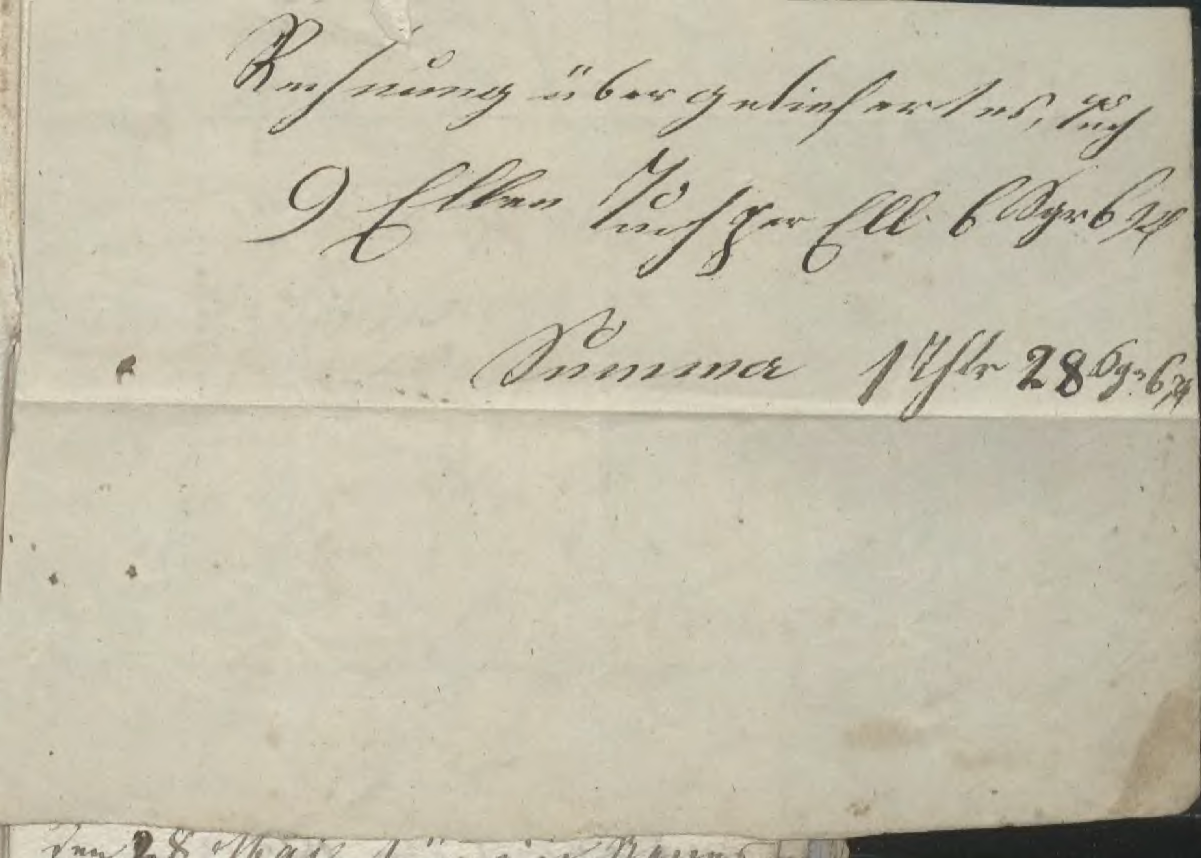 Rechnung über geliefertes, Tuch
9 Ellen Tuch per Ell 6 Sgr 6 ₰
Summa 1 Thlr 28 Sgr 6 ₰
den 28 Mai